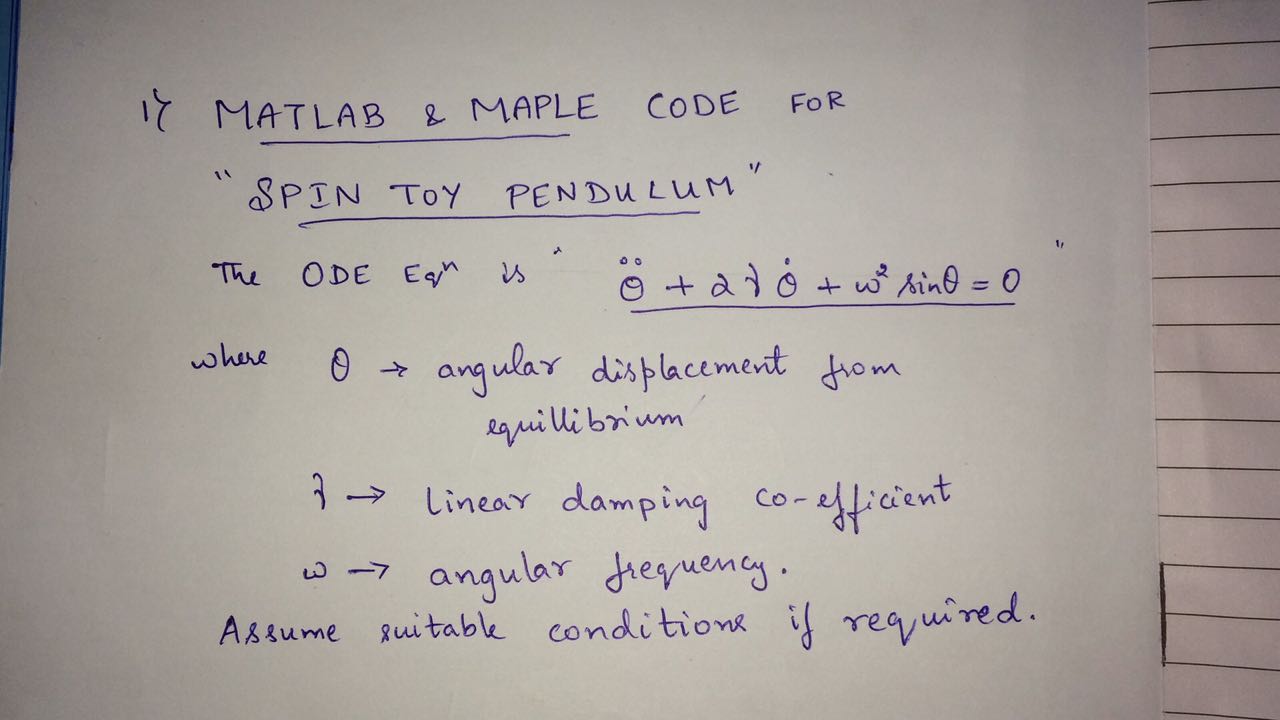 1) MATLAB & MAPLE CODE FOR
"SPIN TOY PENDULUM"
The ODE Eqⁿ is " θ̈ + 2λθ̇ + ω² sinθ = 0 "
where θ → angular displacement from
equillibrium
λ → Linear damping co-efficient
ω → angular frequency.
Assume suitable conditions if required.